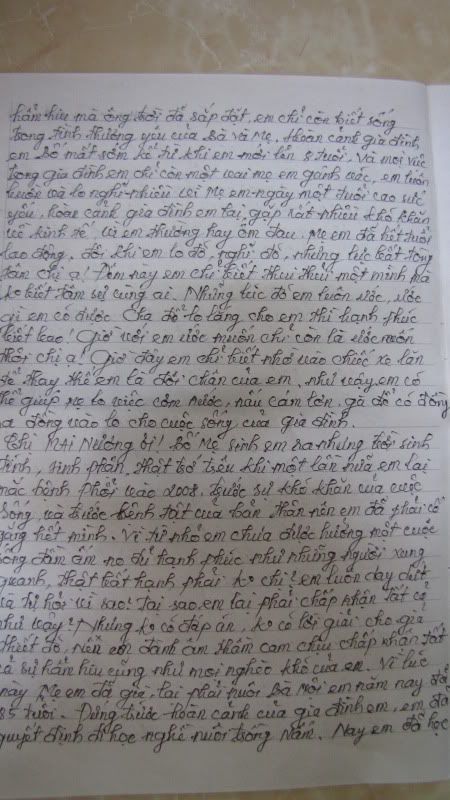 hẩm hiu mà ông trời đã sắp đặt, em chỉ còn biết sống
trong tình thương yêu của Bà và Mẹ. Hoàn cảnh gia đình
em Bố mất sớm kể từ khi em mới lên 8 tuổi. Và mọi việc
trong gia đình em chỉ còn một vai mẹ em gánh vác, em luôn
buồn và lo nghĩ nhiều vì Mẹ em ngày một tuổi cao sức
yếu. hoàn cảnh gia đình em lại gặp rất nhiều khó khăn
về kinh tế vì em thường hay ốm đau. Mẹ em đã hết tuổi
lao động. đôi khi em lo đó, nghĩ đó, nhưng lực bất tòng
tâm chị ạ! Đêm nay em chỉ biết thui thui một mình mà
ko biết tâm sự cùng ai. Những lúc đó em luôn ước, ước
gì em có được Cha để lo lắng cho em thì hạnh phúc
biết bao! Giờ với em ước muốn chỉ còn là ước muốn
thôi chị ạ! Giờ đây em chỉ biết nhờ vào chiếc xe lăn
để thay thế em là đôi chân của em, như vậy em có
thể giúp mẹ lo việc cơm nước, nấu cám lợn, gà để có đồng
ra đồng vào lo cho cuộc sống của gia đình.
Chị Mai Nương ơi! Bố Mẹ sinh em ra nhưng trời sinh
tính, sinh phận, thật trớ trêu khi một lần nữa em lại
mắc bệnh Phổi vào 2008, trước sự khó khăn của cuộc
sống, và trước bệnh tật của bản thân nên em đã phải cố
gắng hết mình. Vì từ nhỏ em chưa được hưởng một cuộc
sống đầm ấm no đủ hạnh phúc như những người xung
quanh, thật bất hạnh phải ko chị! em luôn day dứt
và tự hỏi vì sao! Tại sao em lại phải chấp nhận tất cả
như vậy! Nhưng ko có đáp án, ko có lời giải cho giả
thiết đó, nên em đành âm thầm cam chịu chấp nhận tất
cả sự hẩm hiu cũng như mọi nghèo khổ của em. Vì lúc
này Mẹ em đã già, lại phải nuôi Bà Nội em năm nay đã
85 tuổi. Đứng trước hoàn cảnh của gia đình em, em đã
quyết định đi học nghề nuôi trồng nấm. Nay em đã học